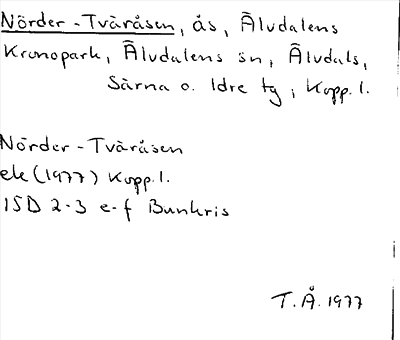 Nörder-Tväråsen, ås, Älvdalens
Kronopark, Älvdalens sn, Älvdals,
Särna o. Idre tg, Kopp. l.
Nörder-Tväråsen
ek (1977) Kopp. l.
15D 2-3 e-f Bunkris
T. Å. 1977